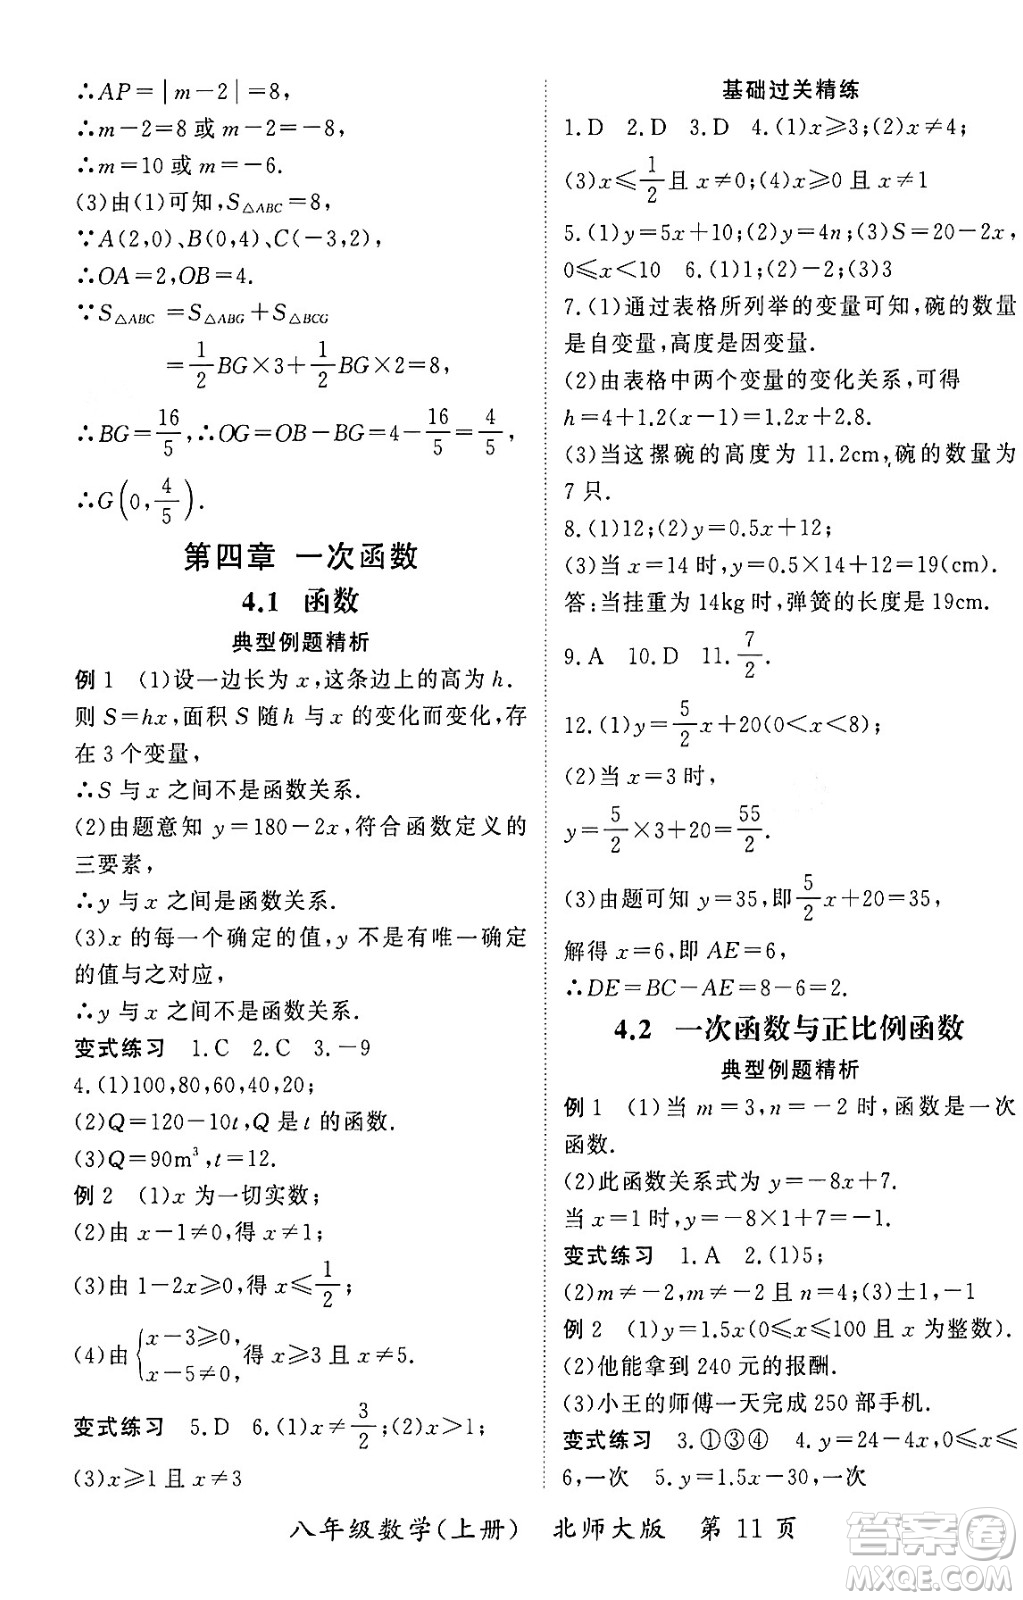 ∴AP=|m-2|=8,
∴m-2=8 或 m-2=-8,
∴m=10 或 m=-6.
(3)由(1)可知,S△ABC=8,
∵A(2,0)、B(0,4)、C(-3,2),
∴OA=2,OB=4.
∵S△ABC =S△ABG+S△BCG
=1/2 BG×3+1/2 BG×2=8,
∴BG=16/5,∴OG=OB-BG=4-16/5=4/5,
∴G(0,4/5).
第四章 一次函数
4.1 函数
典型例题精析
例 1 (1)设一边长为 x,这条边上的高为 h.
则 S=hx,面积 S 随 h 与 x 的变化而变化,存
在 3 个变量,
∴S 与 x 之间不是函数关系.
(2)由题意知 y=180-2x,符合函数定义的
三要素,
∴y 与 x 之间是函数关系.
(3)x 的每一个确定的值,y 不是有唯一确定
的值与之对应,
∴y 与 x 之间不是函数关系.
变式练习 1.C 2.C 3.-9
4.(1)100,80,60,40,20;
(2)Q=120-10t,Q 是 t 的函数.
(3)Q=90m³,t=12.
例 2 (1)x 为一切实数;
(2)由 x-1≠0,得 x≠1;
(3)由 1-2x⩾0,得 x⩽1/2;
(4)由{x-3⩾0, x-5≠0,得 x⩾3 且 x≠5.
变式练习 5.D 6.(1)x≠3/2;(2)x>1;
(3)x⩾1 且 x≠3
基础过关精练
1.D 2.D 3.D 4.(1)x⩾3;(2)x≠4;
(3)x⩽1/2 且 x≠0;(4)x⩾0 且 x≠1
5.(1)y=5x+10;(2)y=4n;(3)S=20-2x,
0⩽x<10 6.(1)1;(2)-2;(3)3
7.(1)通过表格所列举的变量可知,碗的数量
是自变量,高度是因变量.
(2)由表格中两个变量的变化关系,可得
h=4+1.2(x-1)=1.2x+2.8.
(3)当这摞碗的高度为 11.2cm,碗的数量为
7 只.
8.(1)12;(2)y=0.5x+12;
(3)当 x=14 时,y=0.5×14+12=19(cm).
答:当挂重为 14kg 时,弹簧的长度是 19cm.
9.A 10.D 11.7/2.
12.(1)y=5/2 x+20(0<x<8);
(2)当 x=3 时,
y=5/2×3+20=55/2.
(3)由题可知 y=35,即 5/2 x+20=35,
解得 x=6,即 AE=6,
∴DE=BC-AE=8-6=2.
4.2 一次函数与正比例函数
典型例题精析
例 1 (1)当 m=3,n=-2 时,函数是一次
函数.
(2)此函数关系式为 y=-8x+7.
当 x=1 时,y=-8×1+7=-1.
变式练习 1.A 2.(1)5;
(2)m≠-2,m≠-2 且 n=4;(3)±1,-1
例 2 (1)y=1.5x(0⩽x⩽100 且 x 为整数).
(2)他能拿到 240 元的报酬.
(3)小王的师傅一天完成 250 部手机.
变式练习 3.①③④ 4.y=24-4x,0⩽x⩽
6,一次 5.y=1.5x-30,一次
八年级数学(上册) 北师大版 第 11 页
答案卷
MXQE.COM